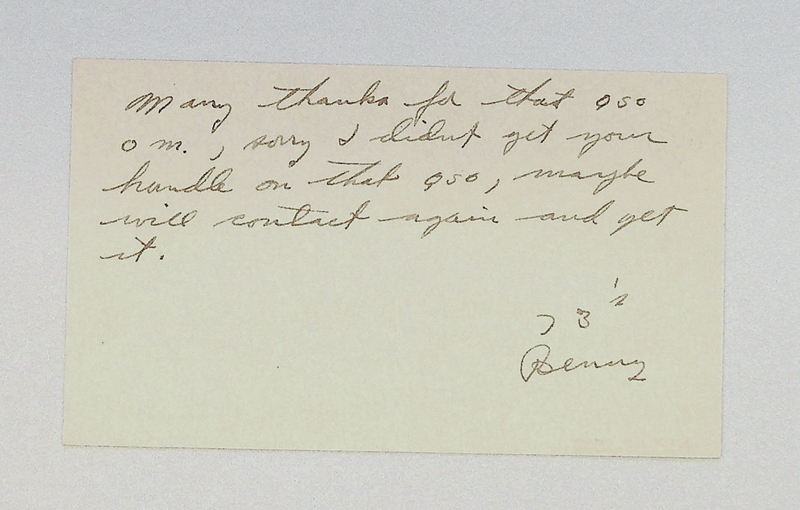 Many thanks for that qso
o m., sorry I didnt get your
handle on that qso, maybe
will contact again and get
it.
73's
Benny